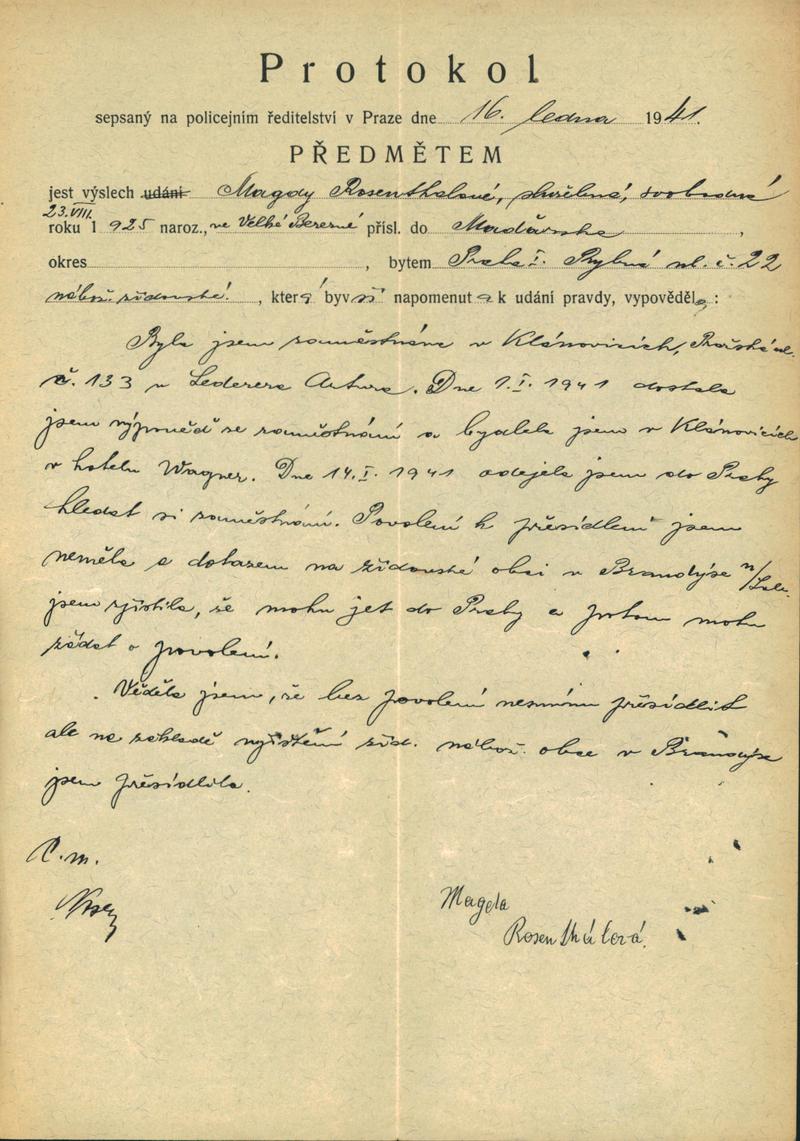 Protokol
sepsaný na policejním ředitelství v Praze dne 16. ledna 1941.
PŘEDMĚTEM
jest výslech udání Magdy Rosenthalové, služebné, svobodné
23.VIII.
roku 1925 naroz., ve Velké Berezné přísl. do Maďarska,
okres , bytem Praha I. Rybná ul. č. 22
nábož. židovské, která byvši napomenuta k udání pravdy, vypověděla:
Byla jsem zaměstnána v Klánovicích, Pražská ul.
č. 133 u Lederera Artura. Dne 1.I. 1941 dostala
jsem výpověď ze zaměstnání a bydlela jsem v Klánovicích
v hotelu Wagner. Dne 14.I. 1941 odejela jsem do Prahy
hledat si zaměstnání. Povolení k přesídlení jsem
neměla a dotazem na židovské obci v Brandýse n/Lab.
jsem zjistila, že mohu jet do Prahy a potom mohu
žádat o povolení.
Věděla jsem, že bez povolení nesmím přesídlit
ale na základě vyjištění žid. nábož. obce v Brandýse
jsem přesídlila.
P.m.
Magda
Rosenthálová.